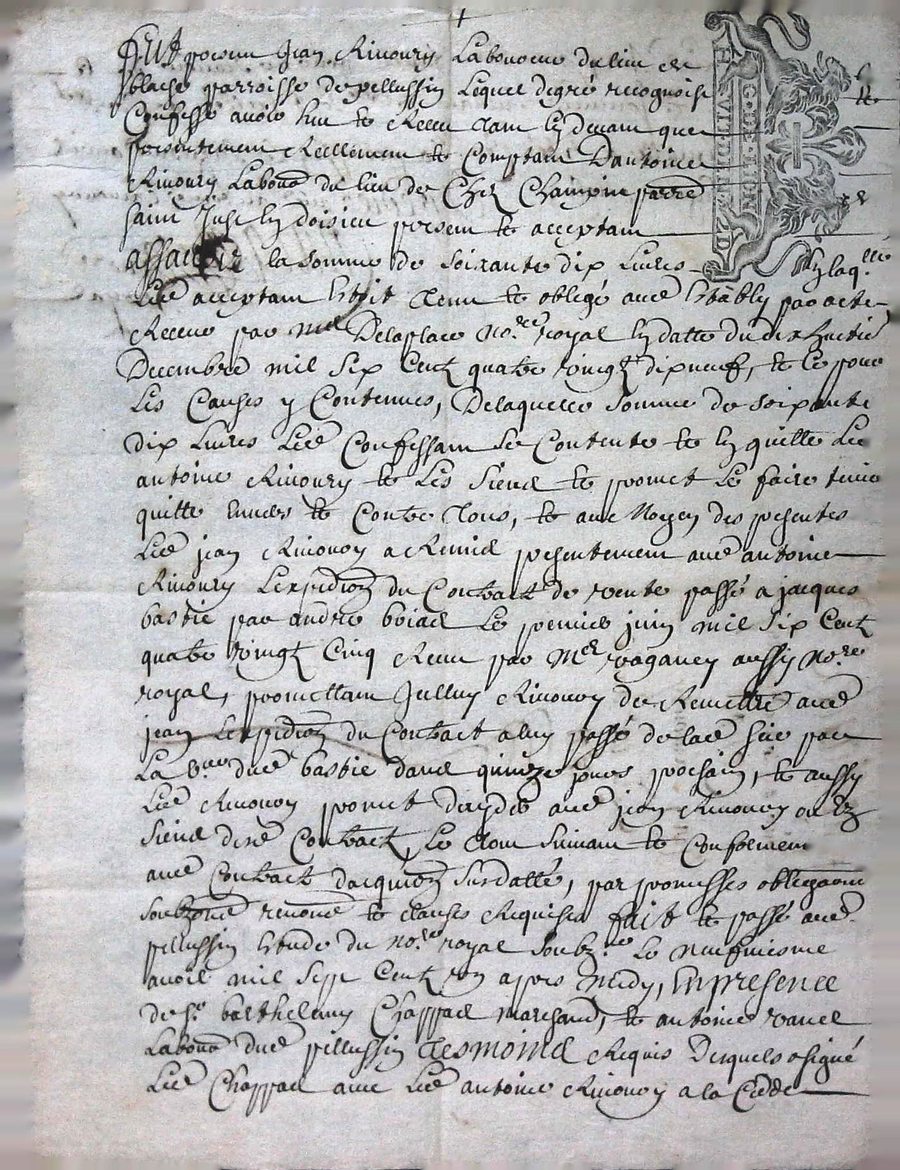 Fut present Jean Rivoury Laboureur du lieu de
blache parroisse de pellussin Lequel de gré recognoist
Confesse avoir heu et Receu tant cy devant que
presentement Reellement et Comptant Dantoine
Rivoury Labour du lieu de Chez Champin parre
saint Just en doisieu present et acceptant
assavoir la somme de soixante dix Livres
En laqlle
Led acceptant Estoit tenu et obligé aud Estably par acte
Receu par me Delaplace nore royal en datte du dix huctie
Decembre mil six Cent quatre vingt dix neuf, et ce pour
Les Causes y Contenues, De laquelle somme de soixante
dix Livres Led Confessant se Contente et en quitte Led
antoine Rivoury et Les siens et promet Le faire tenir
quitte Envers et Contre tous, et au moyen des presentes
Led jean Rivoury a Remis presentement aud antoine
Rivoury Lexpedion du Contract de vente passé a jacques
bastie par andré boiad Le premier juin mil six Cent
quatre vingt Cinq Receu par Me vaganey aussy nore
royal, promettant Rivoury de Remettre aud
jean Lexpedion du Contract a luy passé de lad par
La dud bastie dans quinze jours prochain, et aussy
Led Rivoury promet aud jean Rivoury ou Ez
siens Contract, Le tout suivant et Conforment
aud Contract dacquion susdatté, par promesses obligaons
soubzmis renonce et clauses Requises fait et passé aud
pellussin Estude du nore royal soubz.ne Le neufviesme
avril mil sept Cent un apres midy, En presence
de sr barthelemy Chappad marchand, et antoine vanel
Labour dud pellussin tesmoins Requis Desquels a signé
Led Chappad avec Led antoine Rivoury a la Cedde
G. DE LION